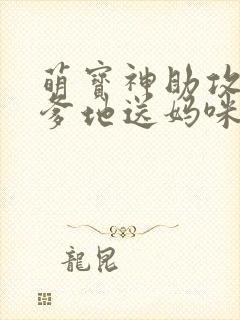 萌寶神助攻
爹地送媽咪
龍昆